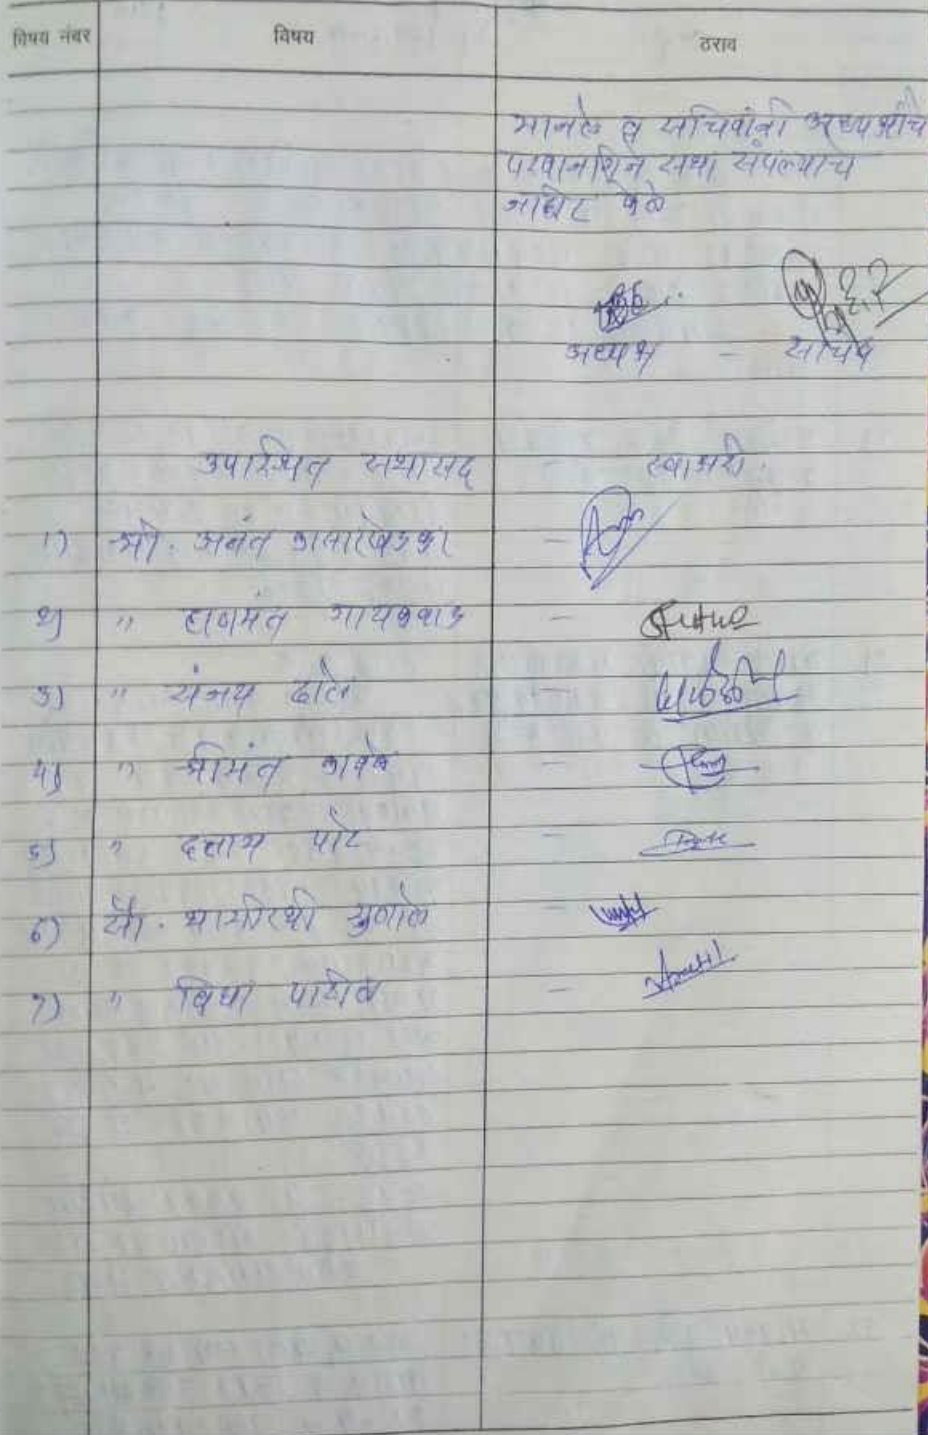 विषय नंबर विषय ठराव
मानले व सचिवांनी अध्यक्षांचे
परवानगीने सभा संपल्याचे
जाहीर केले
अध्यक्ष - सचिव
उपस्थित सभासद स्वाक्षरी
१) श्री. अनंत -
२) " हणमंत गायकवाड -
३) " संजय ढोले -
४) " श्रीमंत काळे -
५) " दत्तात्र पोटे -
६) सौ. भागीरथी -
७) " विद्या पाटील -